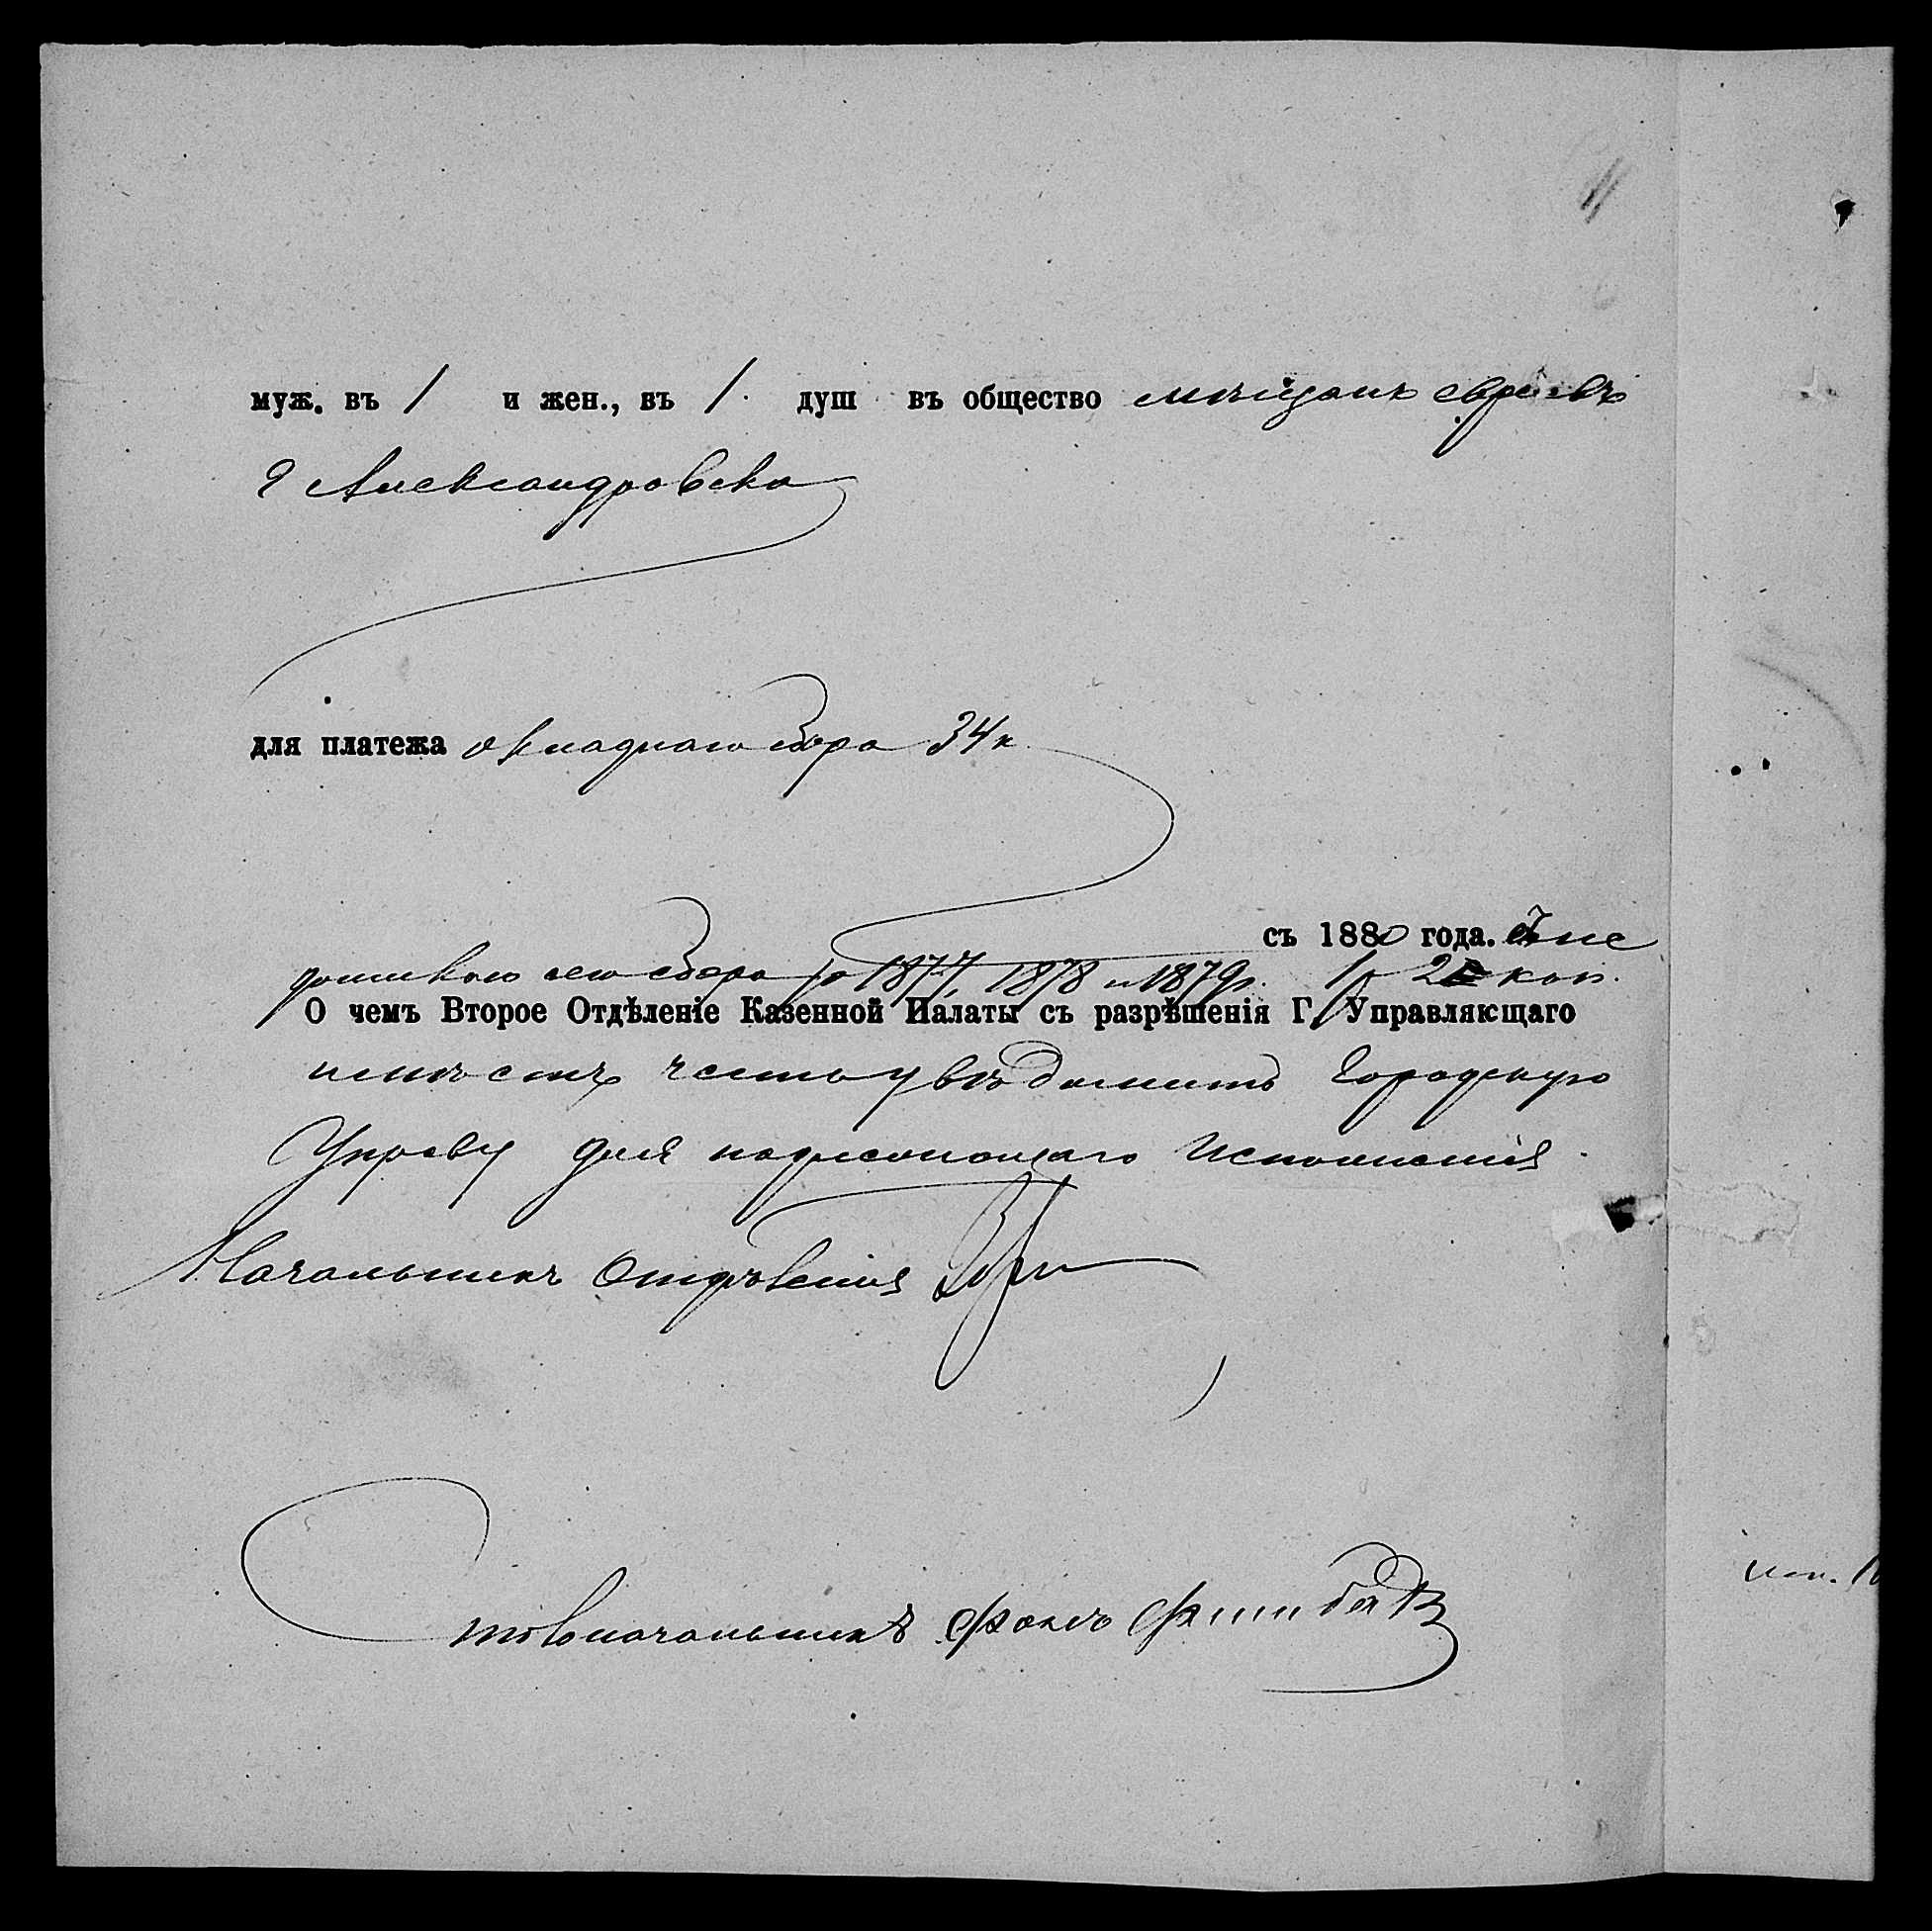 муж. въ 1 и жен., въ 1. душ въ общество мѣщанъ евреевъ
г Александровска
для платежа окладнаго сбора 34 к.
съ 1880 года.
сбора за 1877, 1878 и 1879 г. 1 р 2 коп.
О чемъ Второе Отдѣленіе Казенной Палаты съ разрѣшенія Г. Управляющаго
имѣетъ честь увѣдомить Городскую
Управу для надлежащаго исполненія.
Начальникъ Отдѣленія
Столоначальникъ